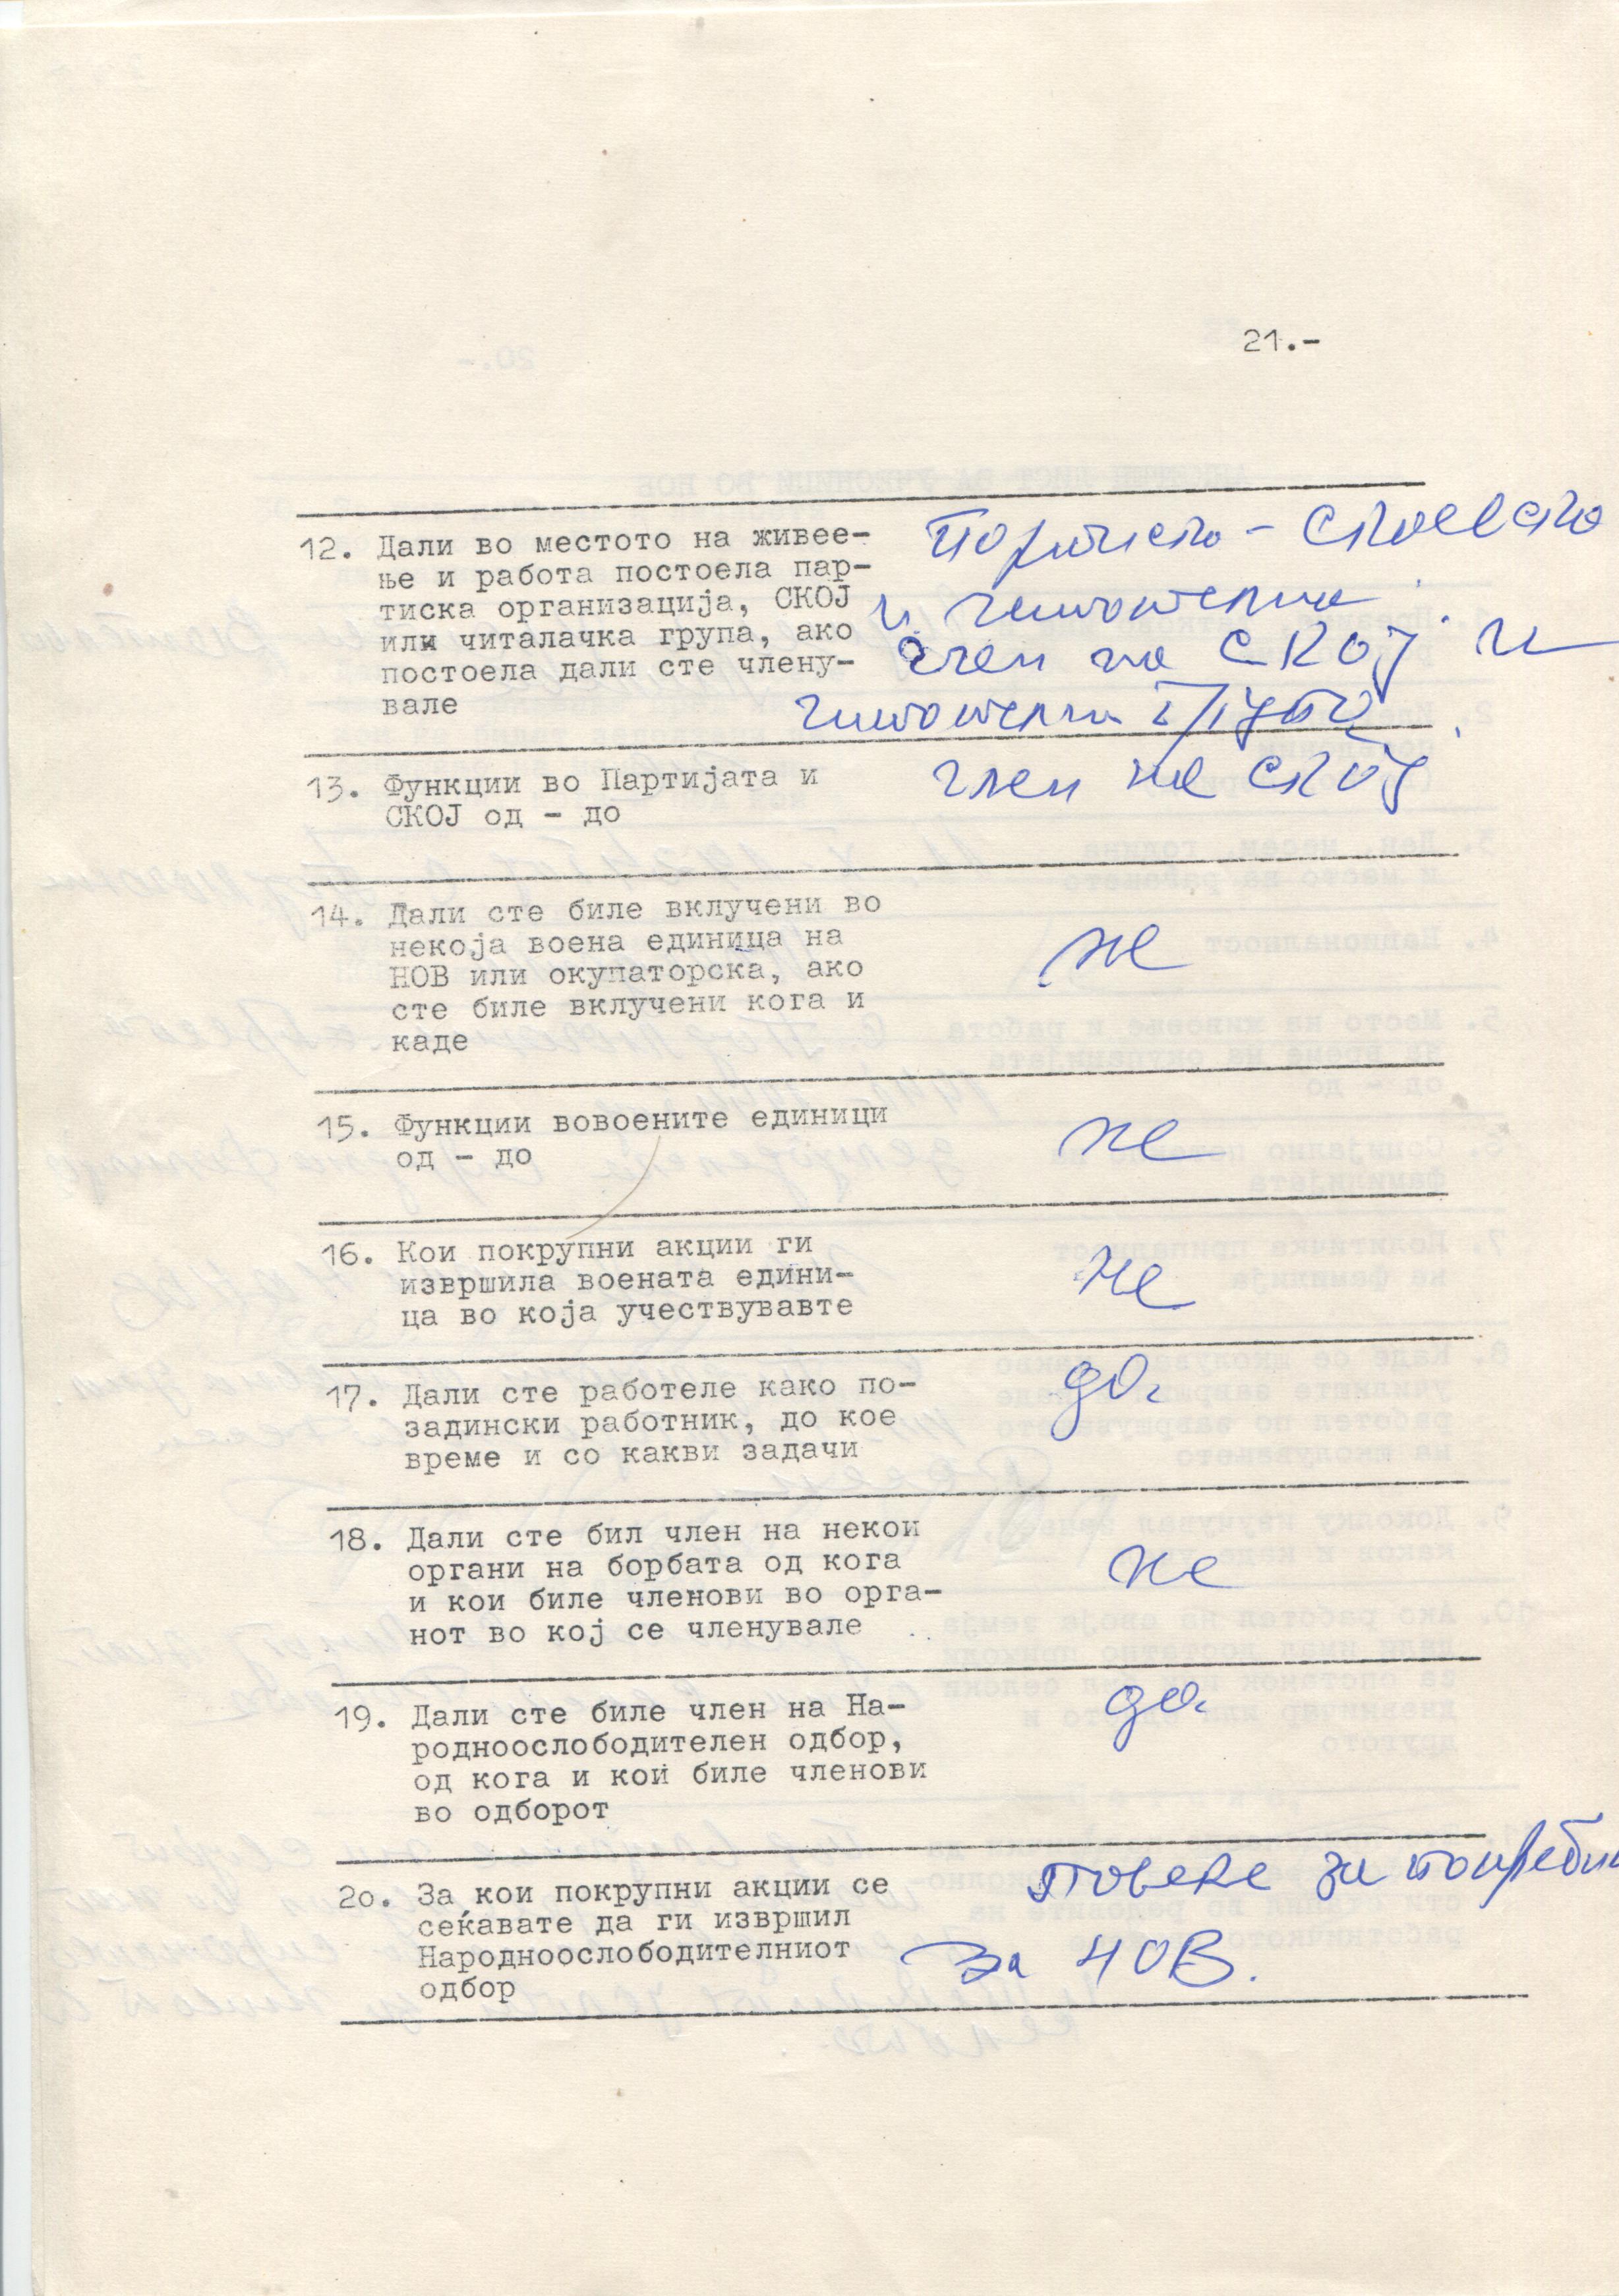 21.-
12. Дали во местото на живее-
ње и работа постоела пар-
тиска организација, СКОЈ
или читалачка група, ако
постоела дали сте члену-
вале
Партиско - скоевско
и читателна
член на СКОЈ. и
читателна група.
13. Функции во Партијата и
СКОЈ од - до
член на СКОЈ
14. Дали сте биле вклучени во
некоја воена единица на
НОВ или окупаторска, ако
сте биле вклучени кога и
каде
не
15. Функции вовоените единици
од - до
не
16. Кои покрупни акции ги
извршила воената едини-
ца во која учествувавте
не
17. Дали сте работеле како по-
задински работник, до кое
време и со какви задачи
да.
18. Дали сте бил член на некои
органи на борбата од кога
и кои биле членови во орга-
нот во кој се членувале
не
19. Дали сте биле член на На-
родноослободителен одбор,
од кога и кои биле членови
во одборот
да.
2о. За кои покрупни акции се
сеќавате да ги извршил
Народноослободителниот
одбор
повеќе за
за НОВ.